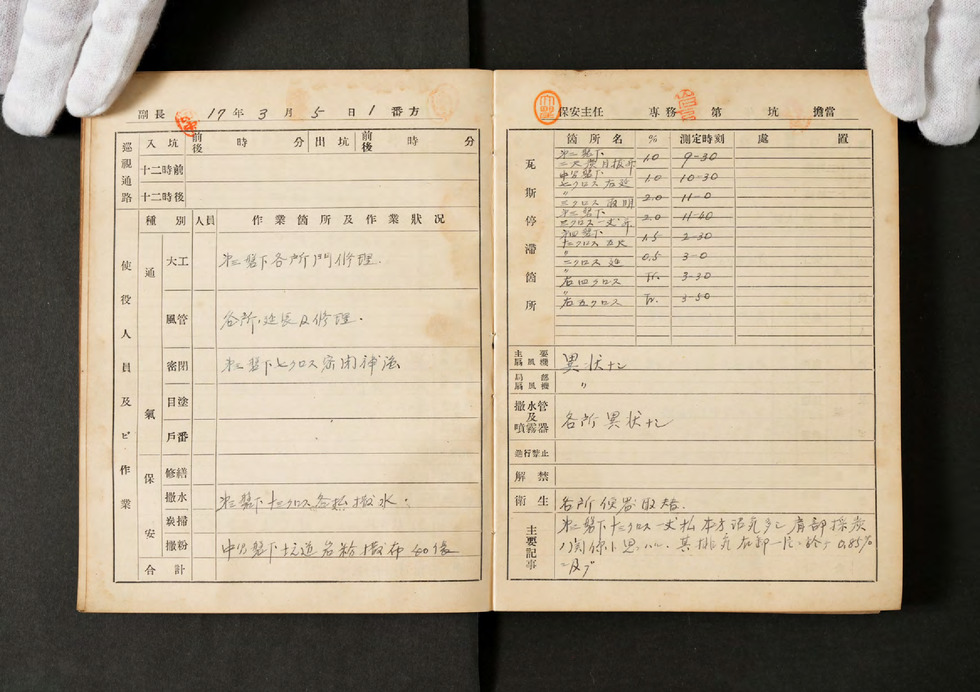 副長 17年3月5日1番方
巡視通路
入坑 前後 時 分 出坑 前後 時 分
十二時前
十二時後
使役人員及ビ作業
種別 人員 作業箇所及作業状况
通氣
大工 第二盤下各所門修理.
風管 各所 延長及修理.
密閉 第二盤下七クロス密閉補强
目塗
戶番
保安
修繕
撒水 第二盤下十二クロス各払撒水.
炭掃
撒粉 中部盤下坑道岩粉撒布 40俵
合計
保安主任 専務 第 坑 擔當
瓦斯停滯箇所
箇所名 % 測定時刻 處置
第二盤下
1.0 9-30
1.0 10-30
七クロス 右延
〃 2.0 11-0
第二盤下
2.0 11-40
第四盤下
1.5 2-30
〃
二クロス 延 0.5 3-0
〃
右四クロス Tr. 3-30
〃
右五クロス Tr. 3-50
主要扇風機 異状ナシ
局部扇風機 〃
撒水管及噴霧器 各所異状ナシ
進行禁止
解禁
衛生 各所便器取替.
主要記事
第二盤下十二クロス一丈払本方 多シ肩部採炭
ノ関係ト思ハル. 其排気 0.85%
二及ブ